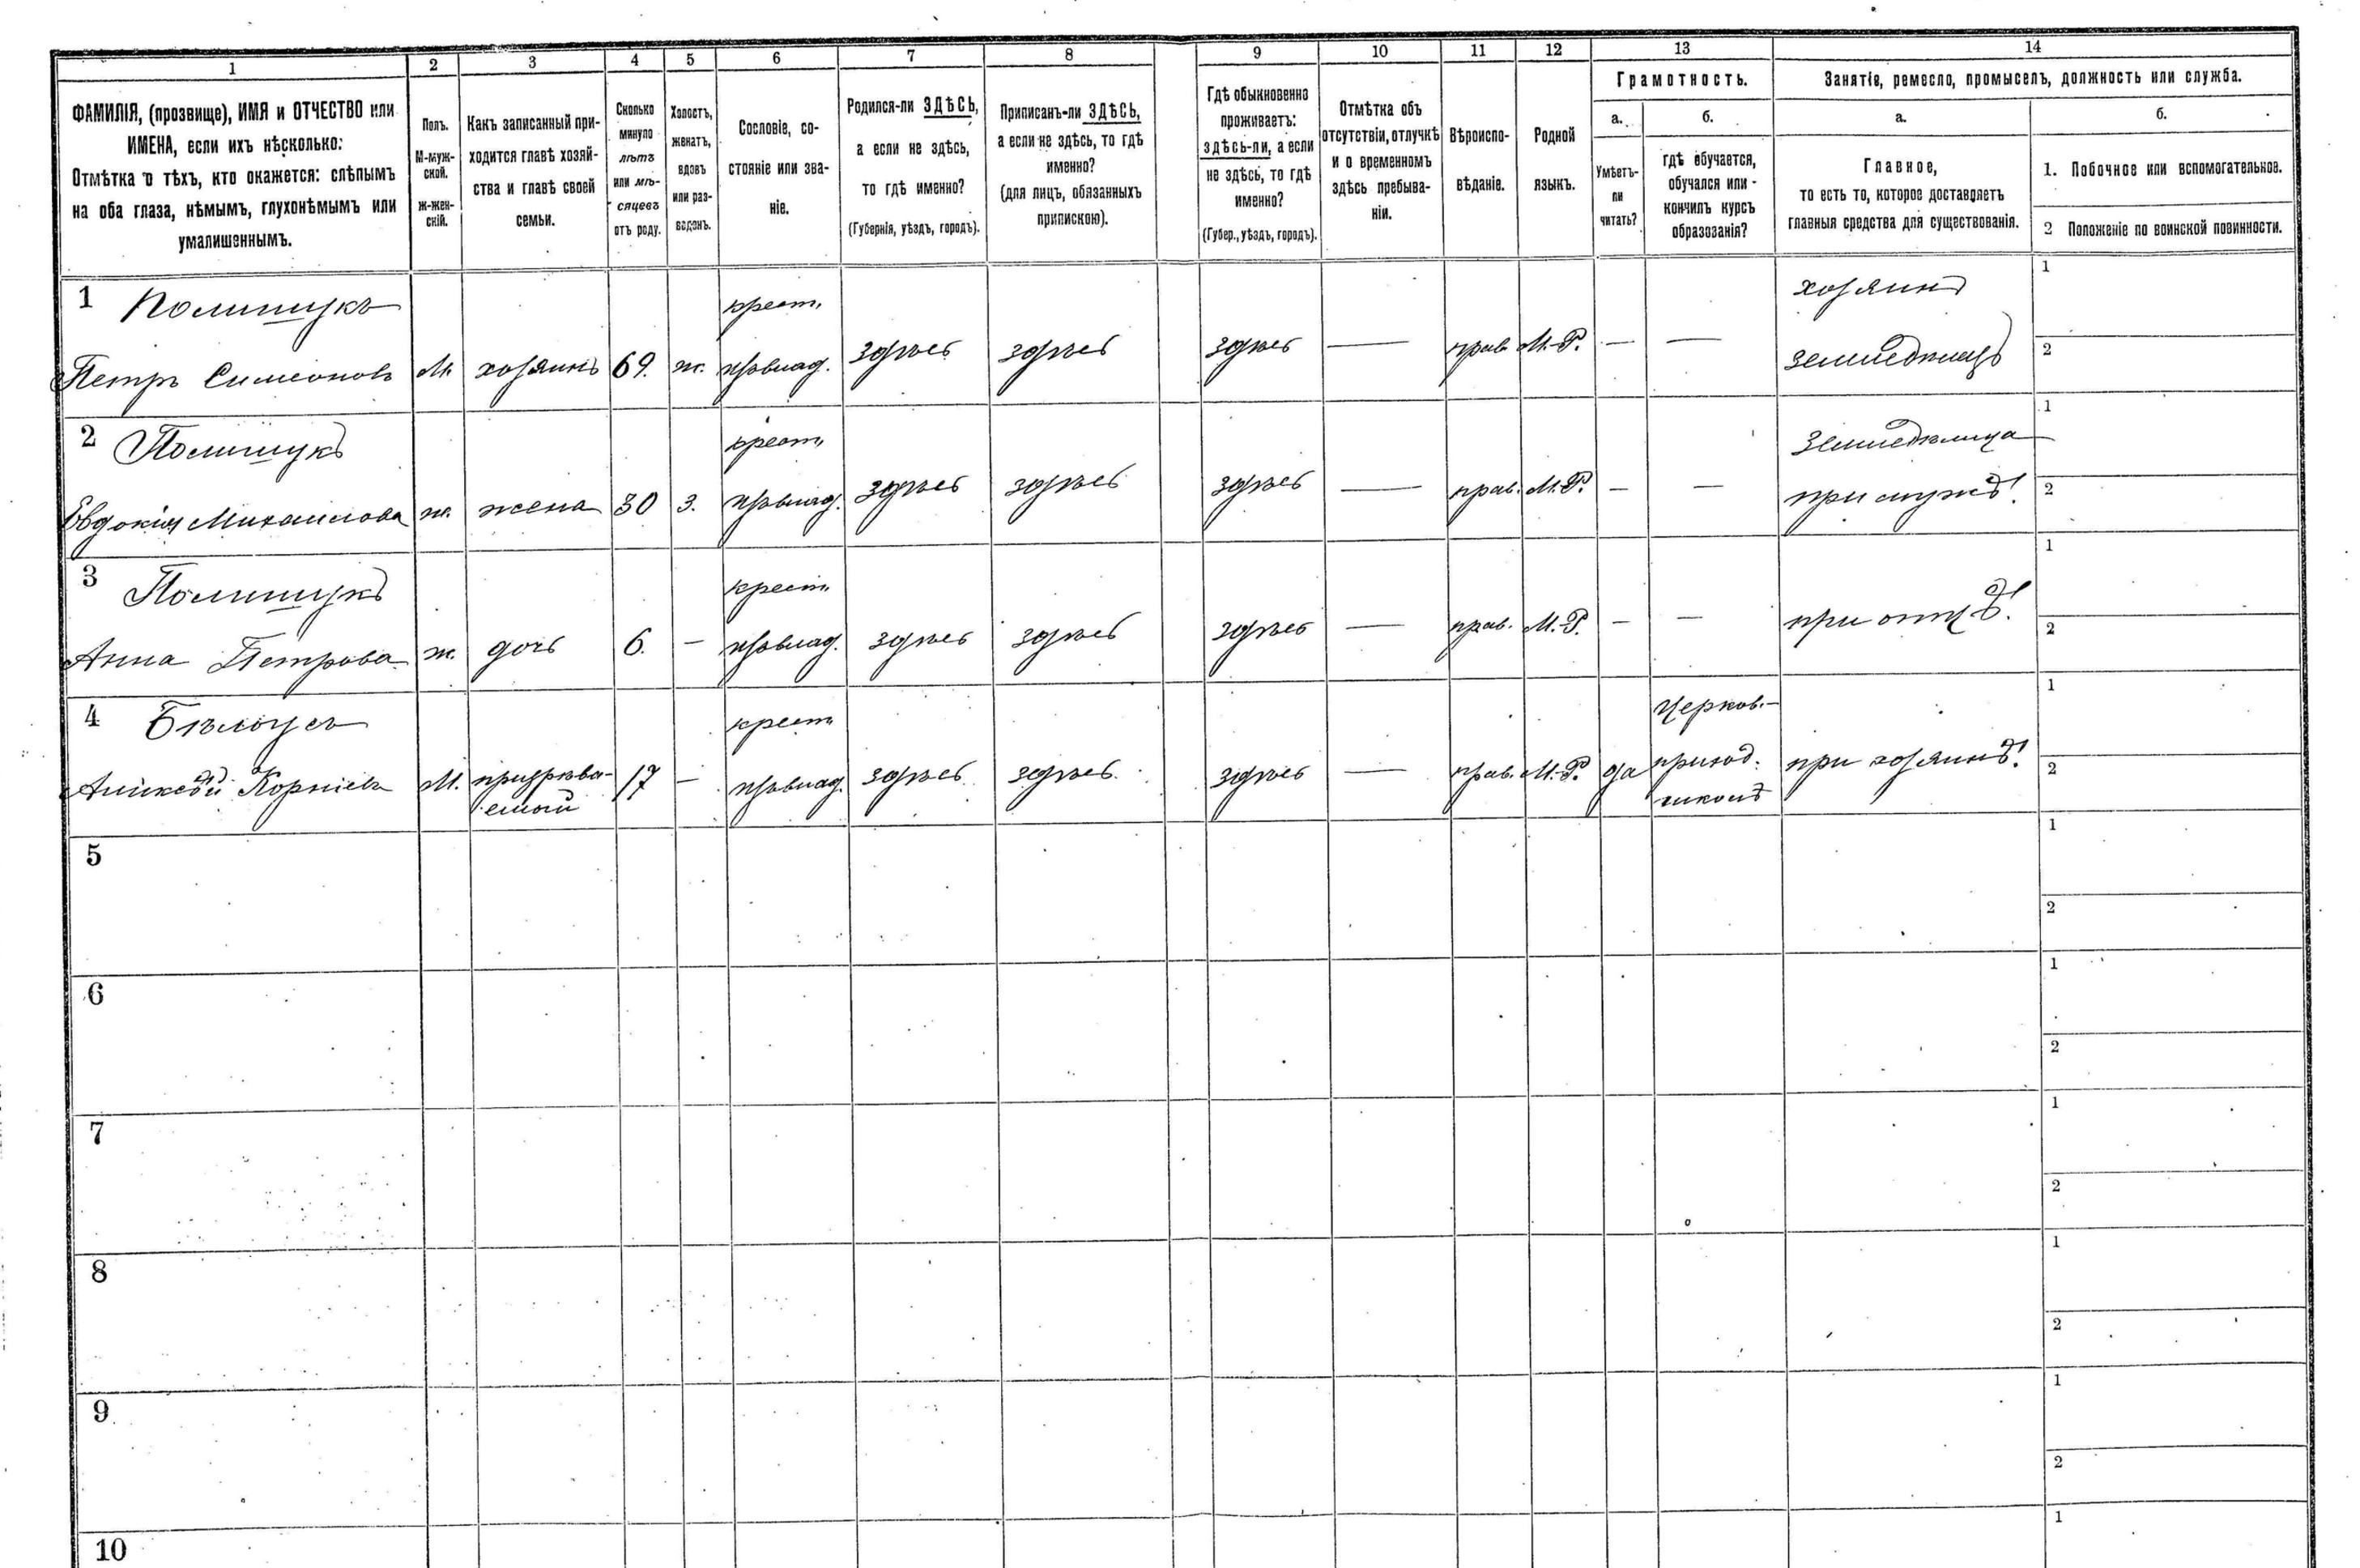 1 2 3 4 5 6 7 8 9 10 11 12 13 14
ФАМИЛІЯ, (прозвище), ИМЯ и ОТЧЕСТВО или
ИМЕНА, если ихъ нѣсколько:
Отмѣтка о тѣхъ, кто окажется: слѣпымъ
на оба глаза, нѣмымъ, глухонѣмымъ или
умалишеннымъ.
Полъ.
М-муж-
ской.
ж-жен-
скій.
Какъ записанный при-
ходится главѣ хозяй-
ства и главѣ своей
семьи.
Сколько
минуло
лѣтъ
или мѣ-
сяцевъ
отъ роду.
Холостъ,
женатъ,
вдовъ
или раз-
веденъ.
Сословіе, со-
стояніе или зва-
ніе.
Родился-ли ЗДѢСЬ,
а если не здѣсь,
то гдѣ именно?
(Губернія, уѣздъ, городъ).
Приписанъ-ли ЗДѢСЬ,
а если не здѣсь, то гдѣ
именно?
(для лицъ, обязанныхъ
припискою).
Гдѣ обыкновенно
проживаетъ:
здѣсь-ли, а если
не здѣсь, то гдѣ
именно?
(Губер., уѣздъ, городъ).
Отмѣтка объ
отсутствіи, отлучкѣ
и о временномъ
здѣсь пребыва-
ніи.
Вѣроиспо-
вѣданіе.
Родной
языкъ.
Грамотность.
а.
Умѣетъ-
ли
читать?
б.
гдѣ обучается,
обучался или
кончилъ курсъ
образованія?
Занятіе, ремесло, промыселъ, должность или служба.
а.
Главное,
то есть то, которое доставляетъ
главныя средства для существованія.
б.
1. Побочное или вспомогательное.
2 Положеніе по воинской повинности.
1 Полищукъ крест. хозяинъ 1
Петръ Симеоновъ М. хозяинъ 69. ж. здѣсь здѣсь здѣсь — прав. М.-Р. — — земледѣлецъ 2
2 Полищукъ крест. земледѣлица 1
Евдокія Михаилова ж. жена 30 з. здѣсь здѣсь здѣсь — прав. М.-Р. — — при мужѣ. 2
3 Полищукъ крест. 1
Анна Петрова ж. дочь 6. — здѣсь здѣсь здѣсь — прав. М.-Р. — — при отцѣ. 2
4 Бѣлоусъ крест. Церков.- 1
Алексѣй Корніевъ М. призрѣва- 17 — здѣсь здѣсь здѣсь — прав. М.-Р. да приход. при хозяинѣ. 2
емый школѣ
5 1
2
6 1
2
7 1
2
8 1
2
9 1
2
10 1